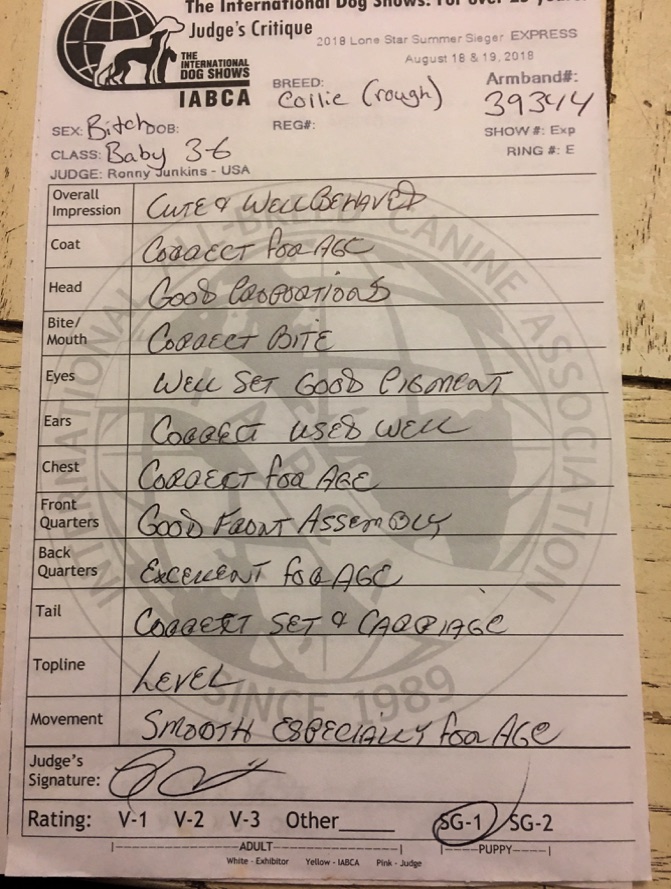 The International Dog Shows. For over 25 year
Judge's Critique
2018 Lone Star Summer Sieger EXPRESS
August 18 & 19, 2018
THE
INTERNATIONAL
DOG SHOWS
IABCA
BREED: Collie (rough)
Armband#: 39344
SEX: Bitch DOB:
REG#:
SHOW #: Exp
CLASS: Baby 3-6
RING #: E
JUDGE: Ronny Junkins - USA
Overall Impression CUTE & WELL BEHAVED
Coat CORRECT FOR AGE
Head GOOD PROPORTIONS
Bite/ Mouth CORRECT BITE
Eyes WELL SET GOOD PIGMENT
Ears CORRECT USED WELL
Chest CORRECT FOR AGE
Front Quarters GOOD FRONT ASSEMBLY
Back Quarters EXCELLENT FOR AGE
Tail CORRECT SET & CARRIAGE
Topline LEVEL
Movement SMOOTH ESPECIALLY FOR AGE
Judge's Signature:
Rating: V-1 V-2 V-3 Other_____ SG-1 SG-2
ADULT PUPPY
White - Exhibitor Yellow - IABCA Pink - Judge
INTERNATIONAL ALL-BREED CANINE ASSOCIATION
SINCE 1989